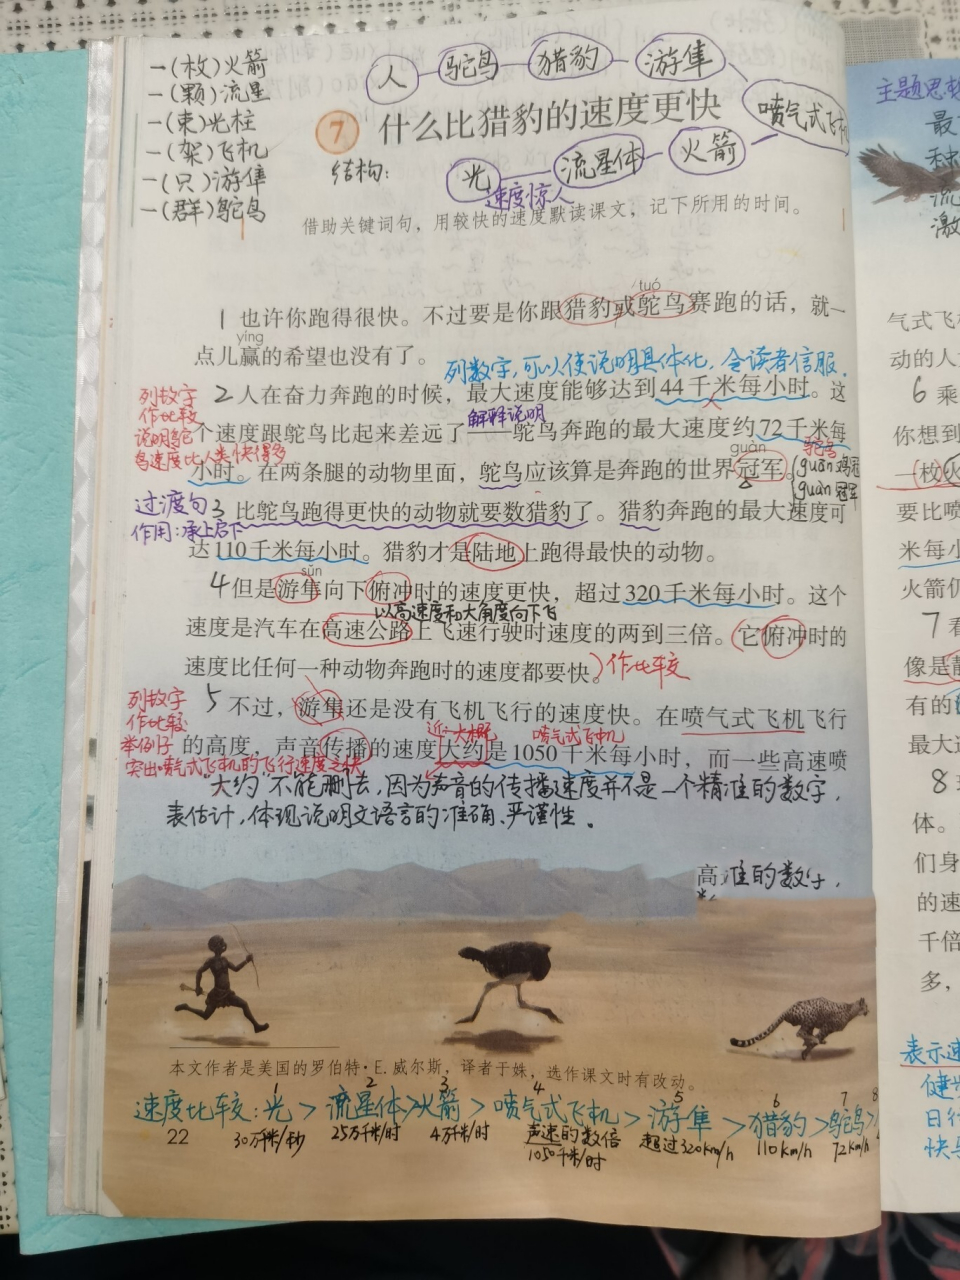 一(枚)火箭
一(颗)流星
一(束)光柱
一(架)飞机
一(只)游隼
一(群)鸵鸟
人 鸵鸟 猎豹 游隼
喷气式飞机
7 什么比猎豹的速度更快
结构: 光 流星体 火箭
速度惊人
借助关键词句，用较快的速度默读课文，记下所用的时间。
tuó
1 也许你跑得很快。不过要是你跟猎豹或鸵鸟赛跑的话，就一
yíng
点儿赢的希望也没有了。
列数字,可以使说明具体化,令读者信服.
列数字
作比较
说明鸵
鸟速度比人类快得多
2 人在奋力奔跑的时候，最大速度能够达到44千米每小时。这
解释说明
个速度跟鸵鸟比起来差远了——鸵鸟奔跑的最大速度约72千米每
guàn
鸵鸟
小时。在两条腿的动物里面，鸵鸟应该算是奔跑的世界冠军。
guān 鸡冠
guàn 冠军
过渡句
作用:承上启下
3 比鸵鸟跑得更快的动物就要数猎豹了。猎豹奔跑的最大速度可
达110千米每小时。猎豹才是陆地上跑得最快的动物。
sǔn
4 但是游隼向下俯冲时的速度更快，超过320千米每小时。这个
以高速度和大角度向下飞
速度是汽车在高速公路上飞速行驶时速度的两到三倍。它俯冲时的
速度比任何一种动物奔跑时的速度都要快。
作比较
列数字
作比较
举例子
突出喷气式飞机的飞行速度之快
5 不过，游隼还是没有飞机飞行的速度快。在喷气式飞机飞行
近: 大概
喷气式飞机
的高度，声音传播的速度大约是1050千米每小时，而一些高速喷
"大约"不能删去,因为声音的传播速度并不是一个精准的数字,
表估计,体现说明文语言的准确、严谨性。
高
准的数字,
本文作者是美国的罗伯特·E.威尔斯，译者于姝，选作课文时有改动。
1 2 3 4 5 6 7 8
速度比较:光>流星体>火箭>喷气式飞机>游隼>猎豹>鸵鸟>
30万千米/秒 25万千米/时 4万千米/时 声速的数倍 超过320km/h 110km/h 72km/h
1050千米/时
22
主题思想
最
种
流
激
气式飞机
动的人
6 乘
你想到
一枚火
要比喷
米每小
火箭仍
7 看
像是静
有的
最大速
8
体。
们身
的速
千倍
多，
表示速
健步
日行
快马